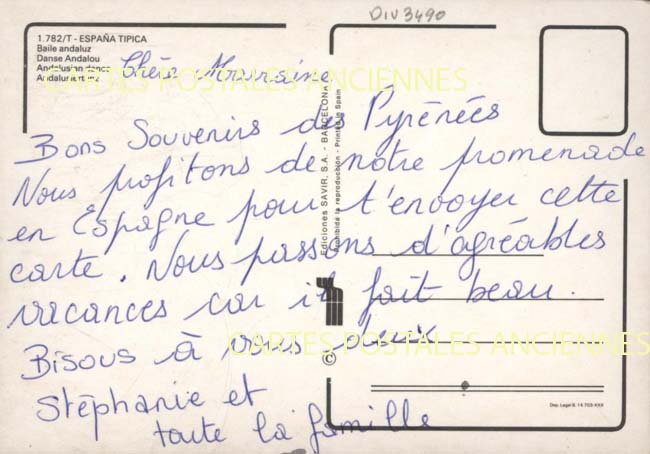 DIV3490
1.782/T - ESPAÑA TIPICA
Baile andaluz
Danse Andalou
Andalusian dance
Andalusiertanz
CARTES POSTALES ANCIENNES
Chère Marraine
Bons Souvenirs des Pyrénées
Nous profitons de notre promenade
en Espagne pour t'envoyer cette
carte. Nous passons d'agréables
vacances car il fait beau.
Bisous à vous deux
Stéphanie et
toute la famille
Ediciones SAVIR, S.A. - BARCELONA
Prohibida la reproducción - Printed in Spain
©
CARTES POSTALES ANCIENNES
Dep. Legal B. 14.703-XXX